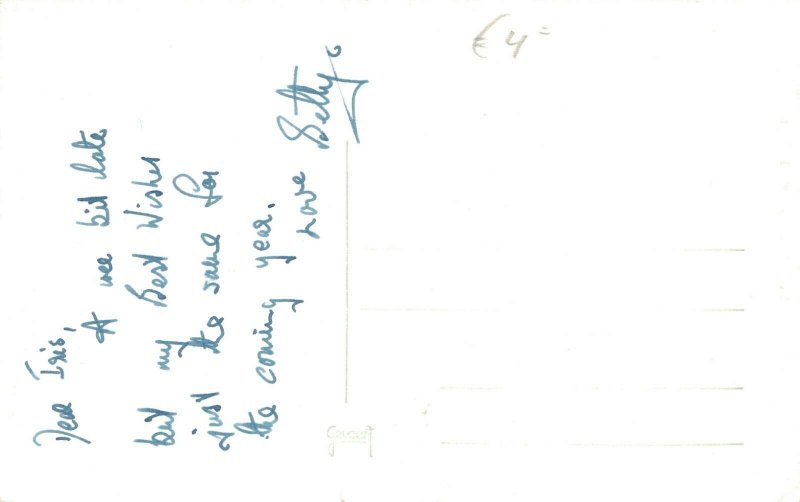 Dear Iris,
A wee bit late
but my Best Wishes
just the same for
the coming year.
Love Betty
€ 4=